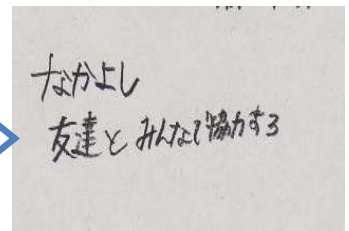 なかよし
友達とみんなで協力する